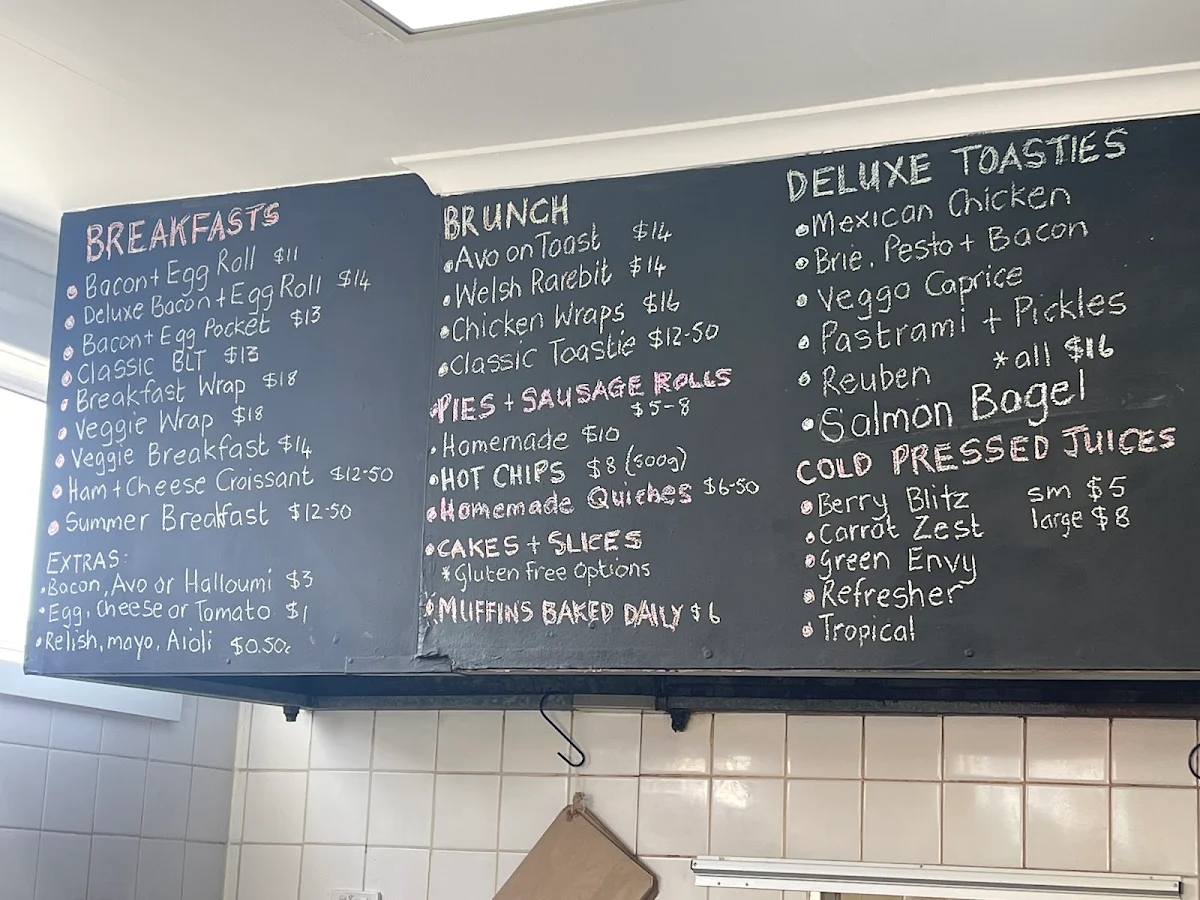 BREAKFASTS
Bacon + Egg Roll $11
Deluxe Bacon + Egg Roll $14
Bacon + Egg Pocket $13
Classic BLT $13
Breakfast Wrap $18
Veggie Wrap $18
Veggie Breakfast $14
Ham + Cheese Croissant $12-50
Summer Breakfast $12-50
EXTRAS:
Bacon, Avo or Halloumi $3
Egg, Cheese or Tomato $1
Relish, mayo, Aioli $0.50c
BRUNCH
Avo on Toast $14
Welsh Rarebit $14
Chicken Wraps $16
Classic Toastie $12-50
PIES + SAUSAGE ROLLS
$5-8
Homemade $10
HOT CHIPS $8 (500g)
Homemade Quiches $6-50
CAKES + SLICES
*Gluten Free Options
MUFFINS BAKED DAILY $6
DELUXE TOASTIES
Mexican Chicken
Brie, Pesto + Bacon
Veggo Caprice
Pastrami + Pickles
Reuben *all $16
Salmon Bagel
COLD PRESSED JUICES
Berry Blitz sm $5
Carrot Zest large $8
Green Envy
Refresher
Tropical